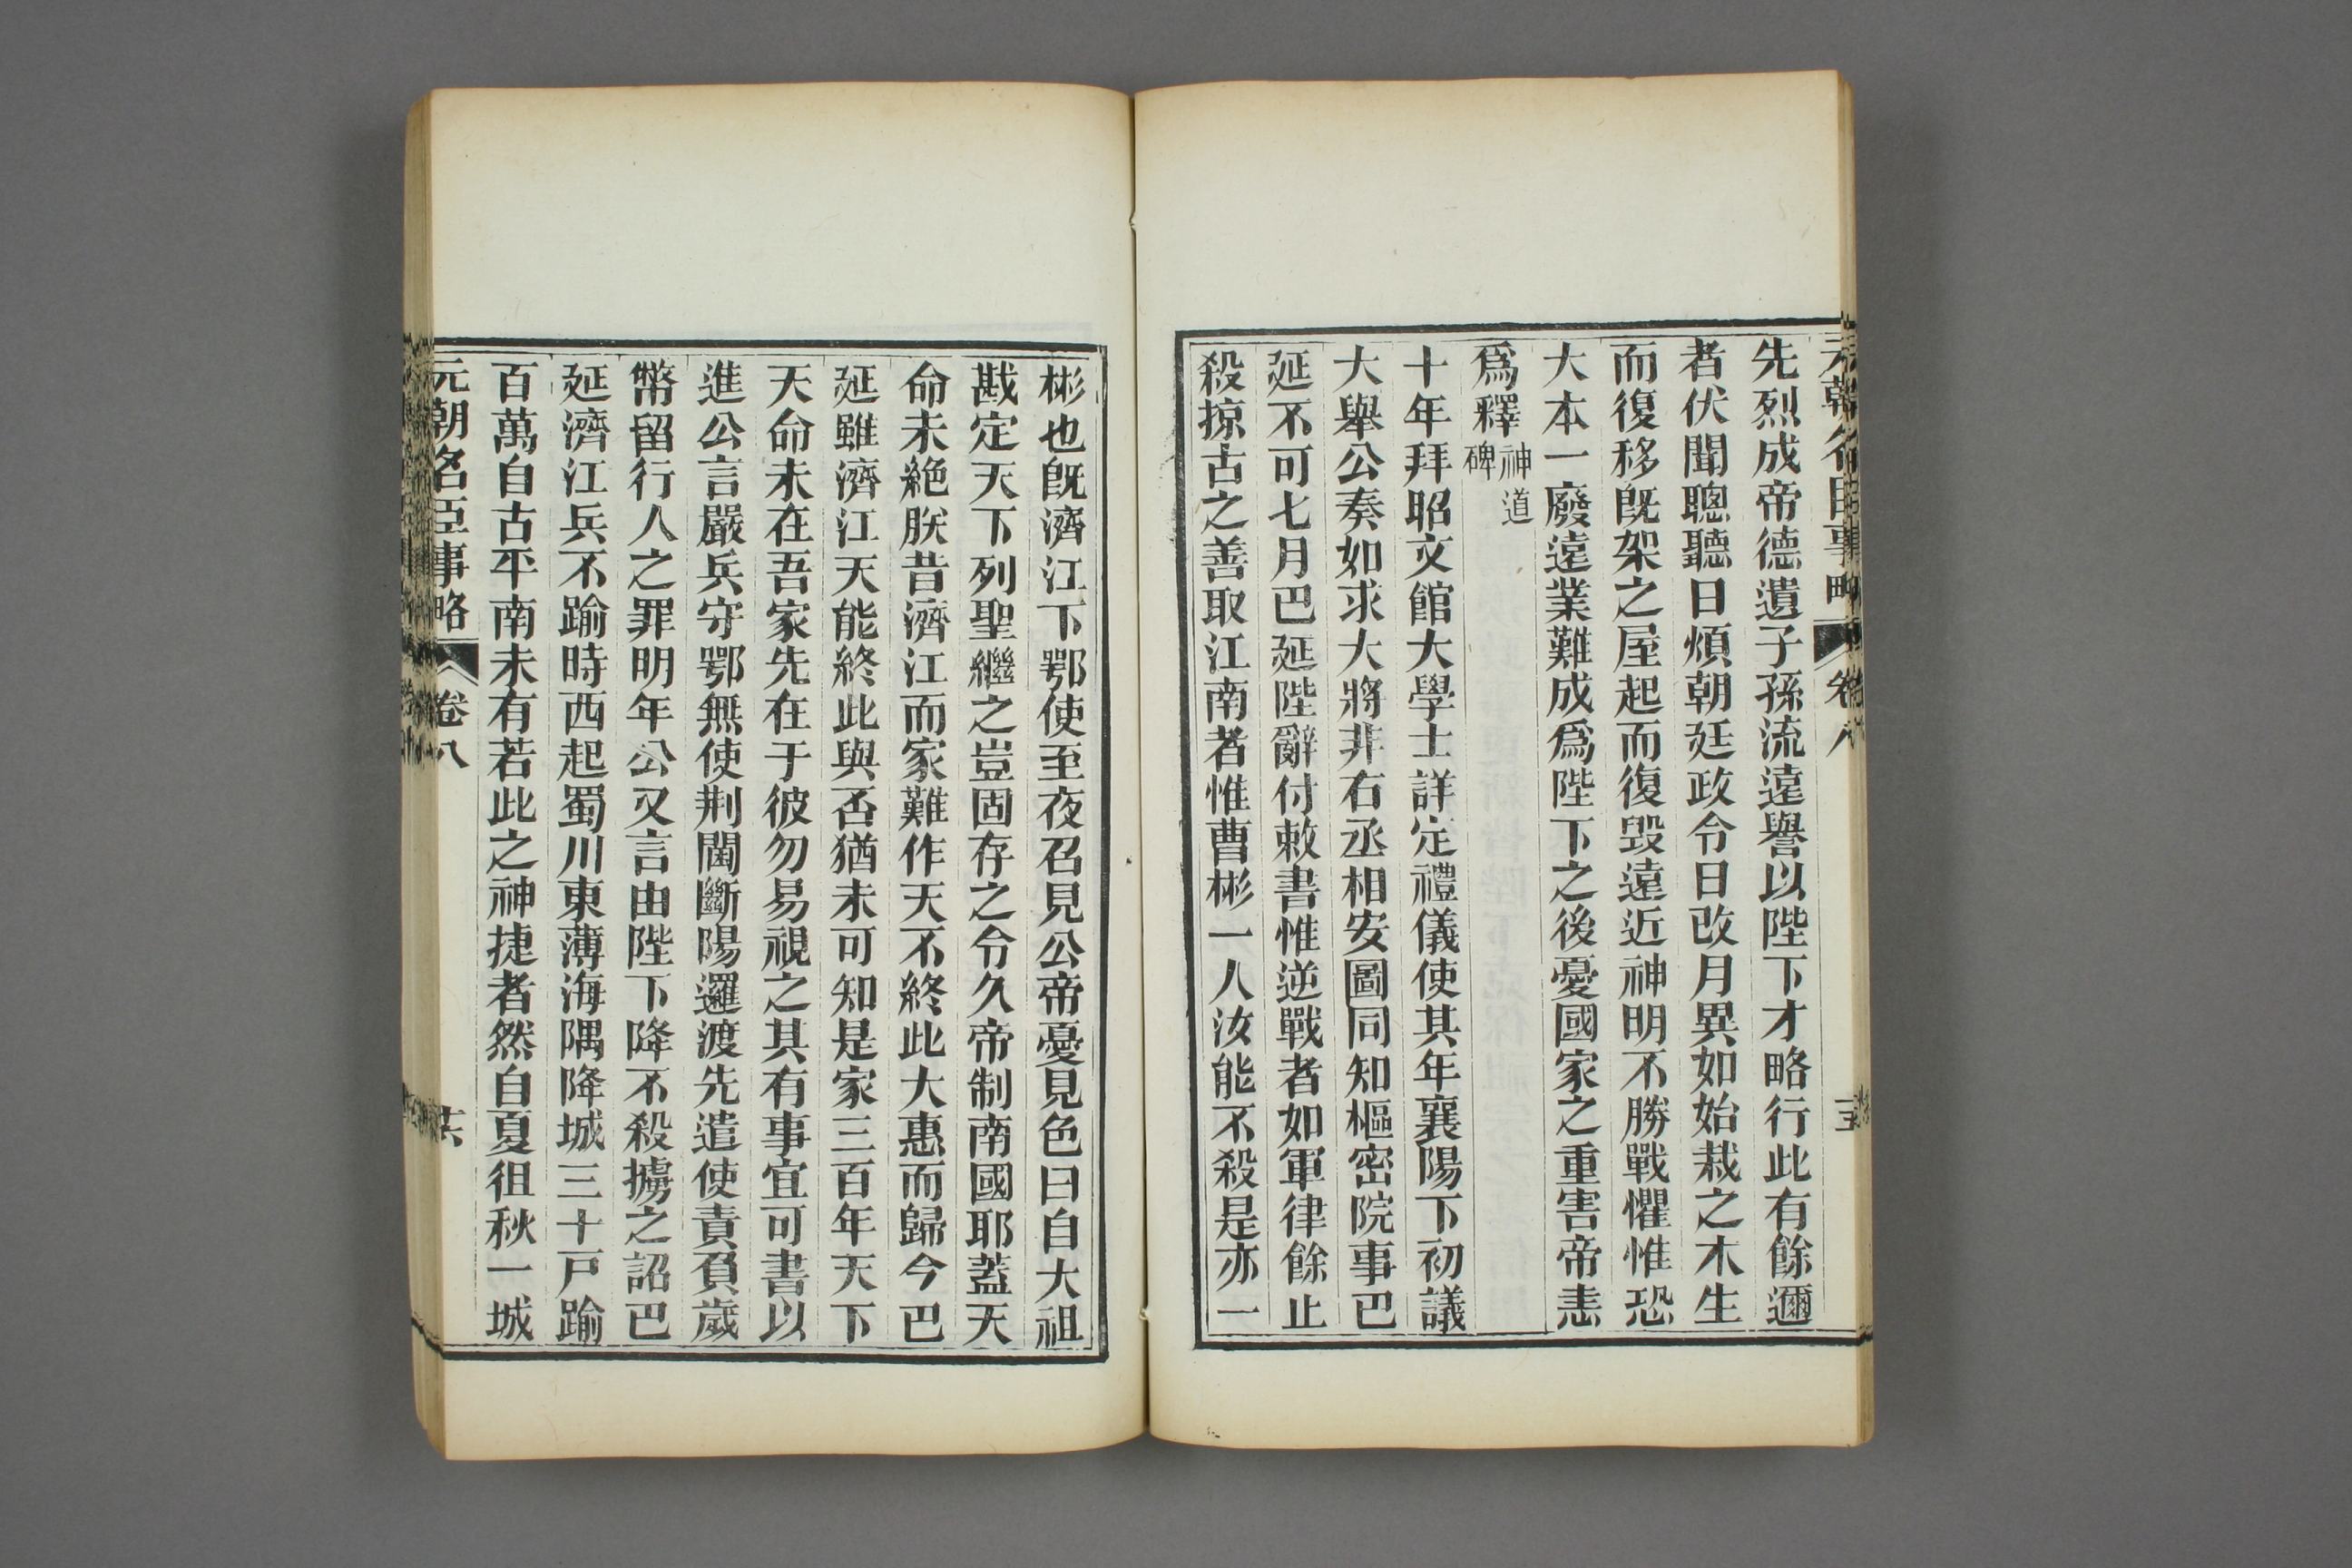 元朝名臣事略 卷八
先烈成帝德遺子孫流遠譽以陛下才略行此有餘邇
者伏聞聰聽日煩朝廷政令日改月異如始栽之木生
而復移旣架之屋起而復毀遠近神明不勝戰懼惟恐
大本一廢遠業難成爲陛下之後憂國家之重害帝恚
爲釋神道碑
十年拜昭文館大學士詳定禮儀使其年襄陽下初議
大舉公奏如求大將非右丞相安圖同知樞密院事巴
延不可七月巴延陛辭付敕書惟逆戰者如軍律餘止
殺掠古之善取江南者惟曹彬一人汝能不殺是亦一
彬也旣濟江下鄂使至夜召見公帝憂見色曰自大祖
戡定天下列聖繼之豈固存之令久帝制南國耶葢天
命未絶朕昔濟江而家難作天不終此大惠而歸今巴
延雖濟江天能終此與否猶未可知是家三百年天下
天命未在吾家先在于彼勿易視之其有事宜可書以
進公言嚴兵守鄂無使荆閫斷陽邏渡先遣使責負歲
幣留行人之罪明年公又言由陛下降不殺擄之詔巴
延濟江兵不踰時西起蜀川東薄海隅降城三十戸踰
百萬自古平南未有若此之神捷者然自夏徂秋一城
元朝名臣事略 卷八 十六